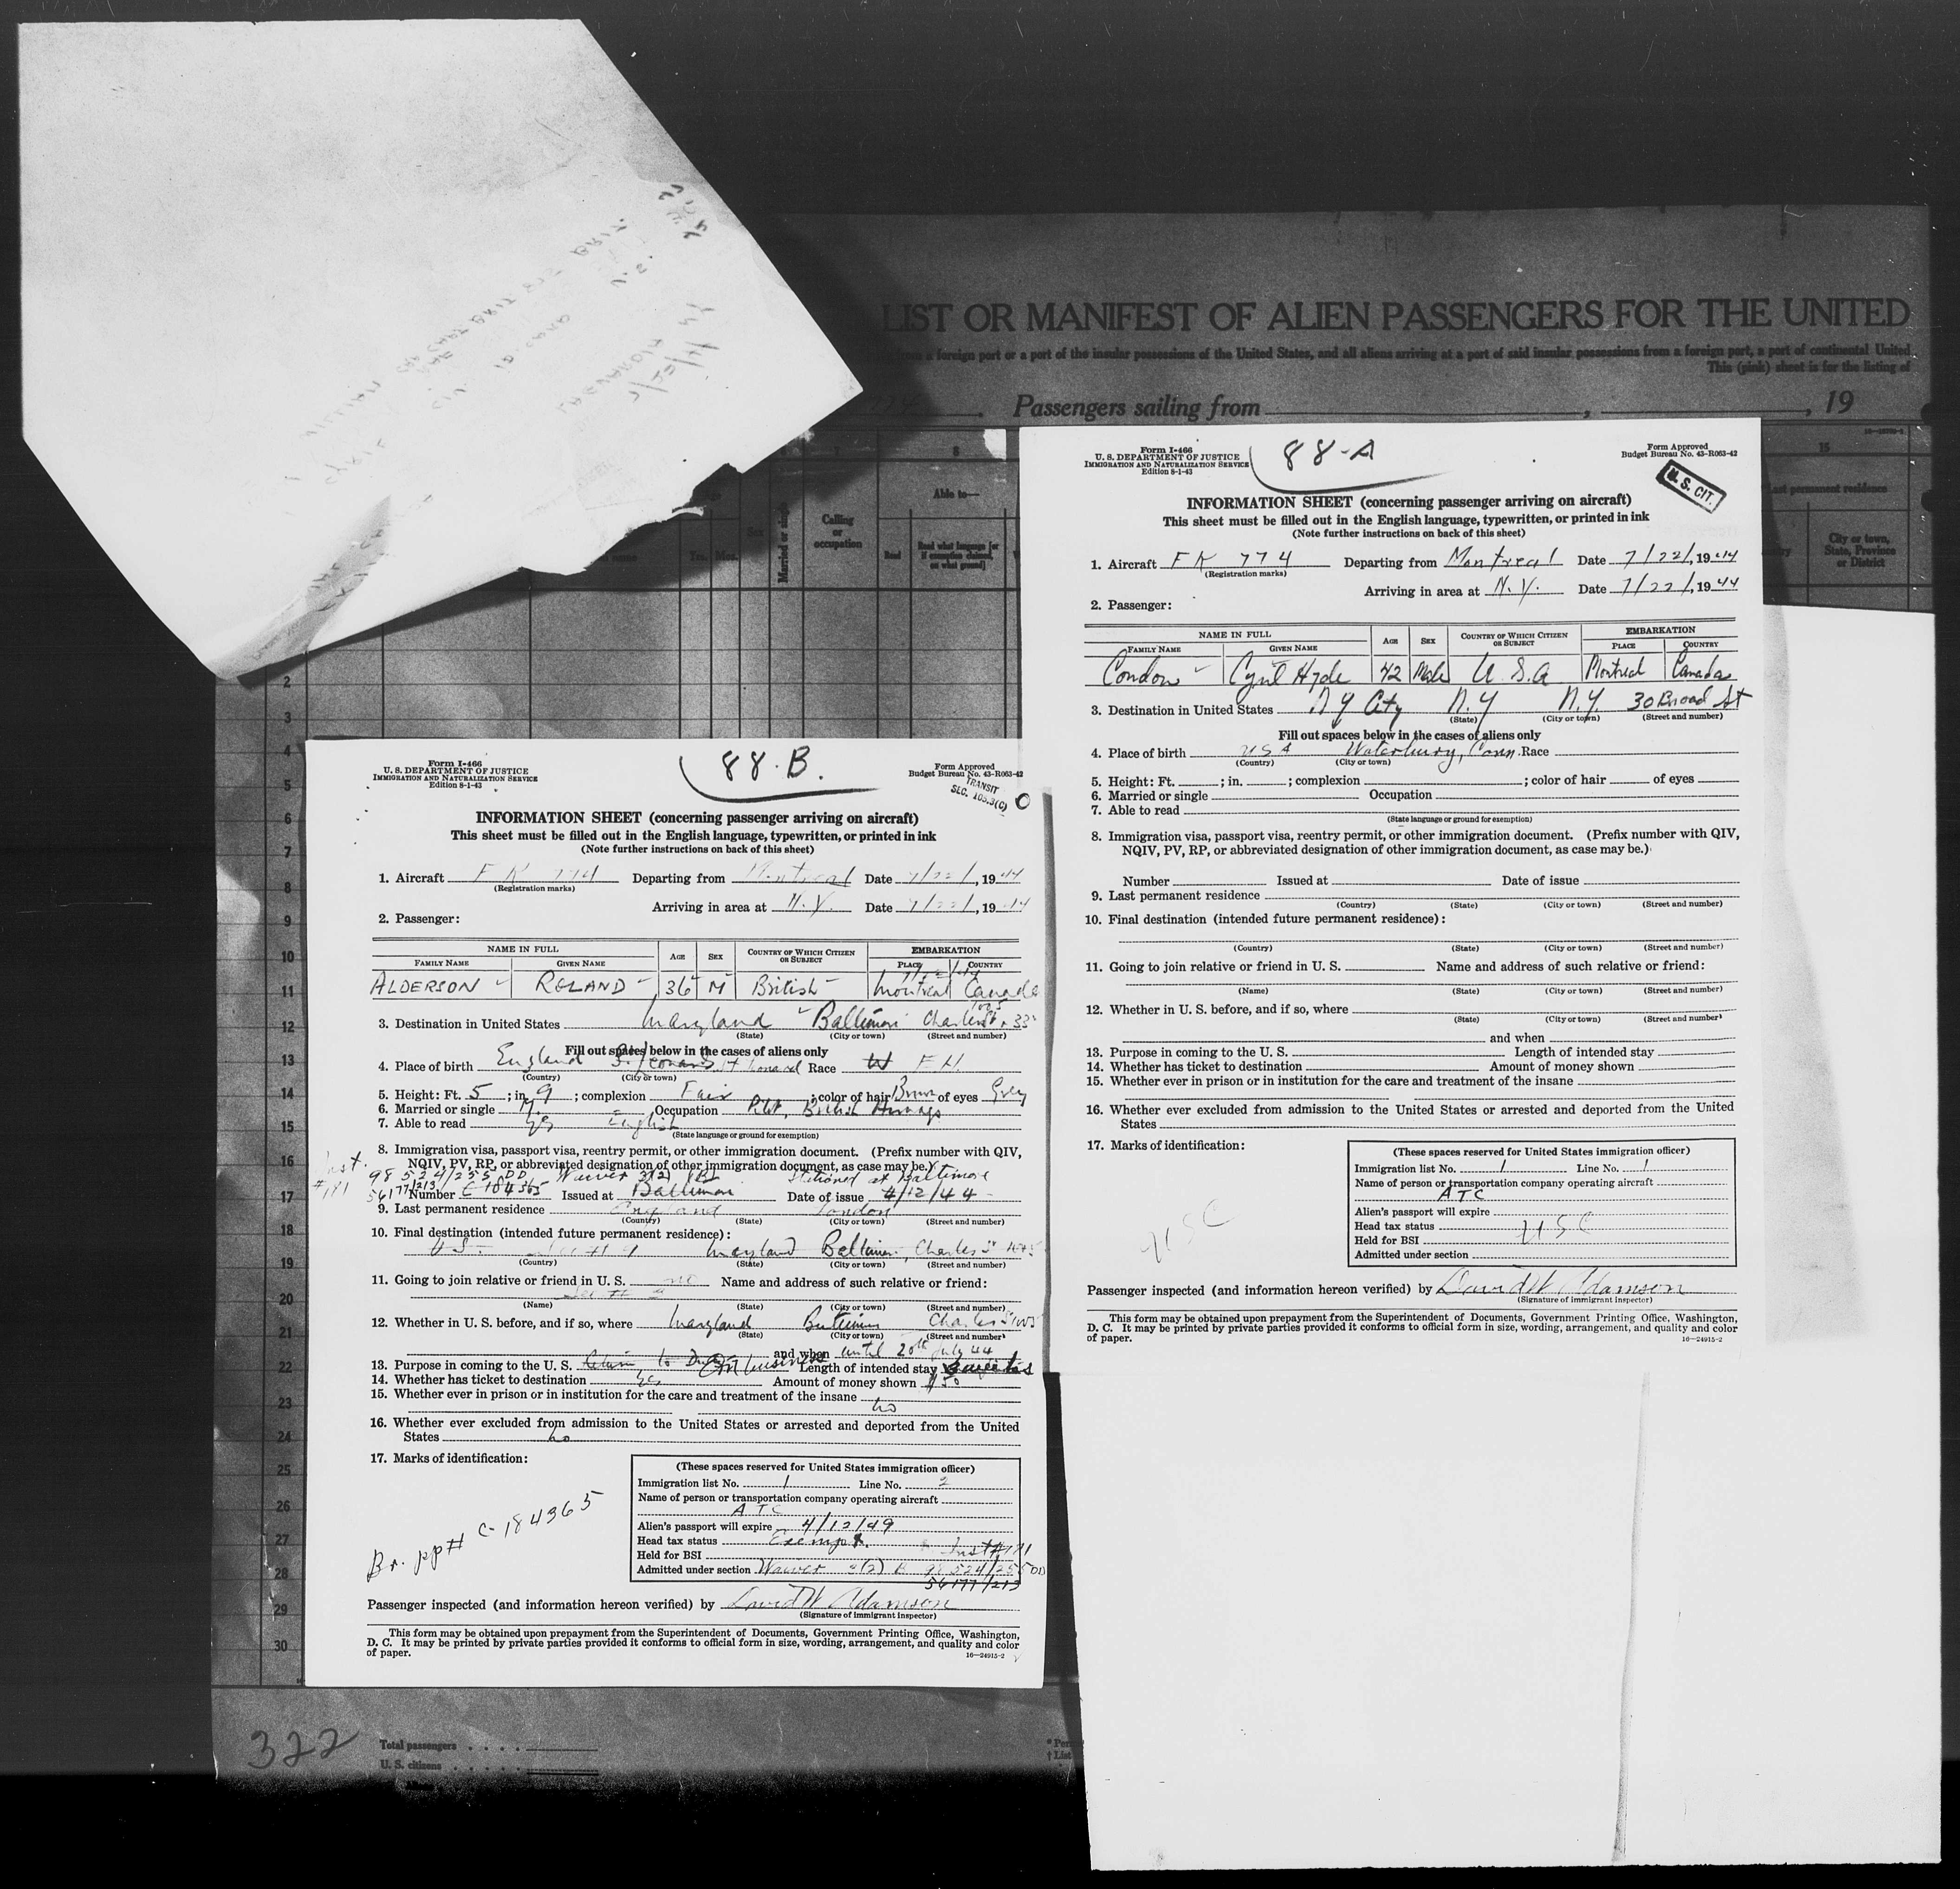 LIST OR MANIFEST OF ALIEN PASSENGERS FOR THE UNITED
a foreign port or a port of the insular possessions of the United States, and all aliens arriving at a port of said insular possessions from a foreign port, a port of continental United
This (pink) sheet is for the listing of
Passengers sailing from , , 19
8 15
Able to—
Calling
or
occupation
Married or single
Sex
Yrs. Mos.
Read
Read what language [or
if exemption claimed,
on what ground]
Last permanent residence
City or town,
State, Province
or District
2
3
4
5
6
7
8
9
10
11
12
13
14
15
16
17
18
19
20
21
22
23
24
25
26
27
28
29
30
322
Total passengers
U. S. citizens
Form I-466
U. S. DEPARTMENT OF JUSTICE
IMMIGRATION AND NATURALIZATION SERVICE
Edition 8-1-43
88-A
Form Approved
Budget Bureau No. 43-R063-42
U. S. CIT.
INFORMATION SHEET (concerning passenger arriving on aircraft)
This sheet must be filled out in the English language, typewritten, or printed in ink
(Note further instructions on back of this sheet)
1. Aircraft FK 774 Departing from Montreal Date 7/22/, 1944
(Registration marks)
Arriving in area at N.Y. Date 7/22/, 1944
2. Passenger:
NAME IN FULL AGE SEX COUNTRY OF WHICH CITIZEN OR SUBJECT EMBARKATION
FAMILY NAME GIVEN NAME PLACE COUNTRY
Condon Cyril Hyde 42 Male U.S.A Montreal Canada
3. Destination in United States N Y City N.Y N.Y. 30 Broad St
(State) (City or town) (Street and number)
Fill out spaces below in the cases of aliens only
4. Place of birth USA Waterbury, Conn. Race
(Country) (City or town)
5. Height: Ft. ; in. ; complexion ; color of hair of eyes
6. Married or single Occupation
7. Able to read
(State language or ground for exemption)
8. Immigration visa, passport visa, reentry permit, or other immigration document. (Prefix number with QIV,
NQIV, PV, RP, or abbreviated designation of other immigration document, as case may be.)
Number Issued at Date of issue
9. Last permanent residence
(Country) (State) (City or town) (Street and number)
10. Final destination (intended future permanent residence):
(Country) (State) (City or town) (Street and number)
11. Going to join relative or friend in U. S. Name and address of such relative or friend:
(Name) (State) (City or town) (Street and number)
12. Whether in U. S. before, and if so, where
(State) (City or town) (Street and number)
and when
13. Purpose in coming to the U. S. Length of intended stay
14. Whether has ticket to destination Amount of money shown
15. Whether ever in prison or in institution for the care and treatment of the insane
16. Whether ever excluded from admission to the United States or arrested and deported from the United
States
17. Marks of identification:
USC
(These spaces reserved for United States immigration officer)
Immigration list No. 1 Line No. 1
Name of person or transportation company operating aircraft
ATC
Alien's passport will expire
Head tax status USC
Held for BSI
Admitted under section
Passenger inspected (and information hereon verified) by David W Adamson
(Signature of immigrant inspector)
This form may be obtained upon prepayment from the Superintendent of Documents, Government Printing Office, Washington,
D. C. It may be printed by private parties provided it conforms to official form in size, wording, arrangement, and quality and color
of paper. 16—24915-2
Form I-466
U. S. DEPARTMENT OF JUSTICE
IMMIGRATION AND NATURALIZATION SERVICE
Edition 8-1-43
88-B.
Form Approved
Budget Bureau No. 43-R063-42
TRANSIT
SEC. 105.3(C)
INFORMATION SHEET (concerning passenger arriving on aircraft)
This sheet must be filled out in the English language, typewritten, or printed in ink
(Note further instructions on back of this sheet)
1. Aircraft FK 774 Departing from Montreal Date 7/22/, 1944
(Registration marks)
Arriving in area at N.Y. Date 7/22/, 1944
2. Passenger:
NAME IN FULL AGE SEX COUNTRY OF WHICH CITIZEN OR SUBJECT EMBARKATION
FAMILY NAME GIVEN NAME PLACE COUNTRY
ALDERSON ROLAND 36 M British Montreal Canada
3. Destination in United States Maryland Baltimore Charles St
(State) (City or town) (Street and number)
Fill out spaces below in the cases of aliens only
4. Place of birth England Race W
(Country) (City or town)
5. Height: Ft. 5 ; in. 9 ; complexion Fair ; color of hair Brown of eyes Grey
6. Married or single M. Occupation Pilot, British Airways
7. Able to read yes English
(State language or ground for exemption)
8. Immigration visa, passport visa, reentry permit, or other immigration document. (Prefix number with QIV,
NQIV, PV, RP, or abbreviated designation of other immigration document, as case may be.)
Inst. 98524/255 DD Waiver 3(2) Stationed at Baltimore
#181 56177/213 Number C 184365 Issued at Baltimore Date of issue 4/12/44
9. Last permanent residence England London
(Country) (State) (City or town) (Street and number)
10. Final destination (intended future permanent residence):
U S Maryland Baltimore, Charles St
(Country) (State) (City or town) (Street and number)
11. Going to join relative or friend in U. S. no Name and address of such relative or friend:
(Name) (State) (City or town) (Street and number)
12. Whether in U. S. before, and if so, where Maryland Baltimore Charles St
(State) (City or town) (Street and number)
and when until 20th July 44
13. Purpose in coming to the U. S. Return to Duty On business Length of intended stay
14. Whether has ticket to destination yes Amount of money shown $50
15. Whether ever in prison or in institution for the care and treatment of the insane
no
16. Whether ever excluded from admission to the United States or arrested and deported from the United
States no
17. Marks of identification:
Br. pp# C-184365
(These spaces reserved for United States immigration officer)
Immigration list No. 1 Line No. 2
Name of person or transportation company operating aircraft
ATC
Alien's passport will expire 4/12/49
Head tax status Exempt.
Held for BSI Inst #181
Admitted under section Waiver 3(2) B 98524/255 DD
56177/213
Passenger inspected (and information hereon verified) by David W Adamson
(Signature of immigrant inspector)
This form may be obtained upon prepayment from the Superintendent of Documents, Government Printing Office, Washington,
D. C. It may be printed by private parties provided it conforms to official form in size, wording, arrangement, and quality and color
of paper. 16—24915-2